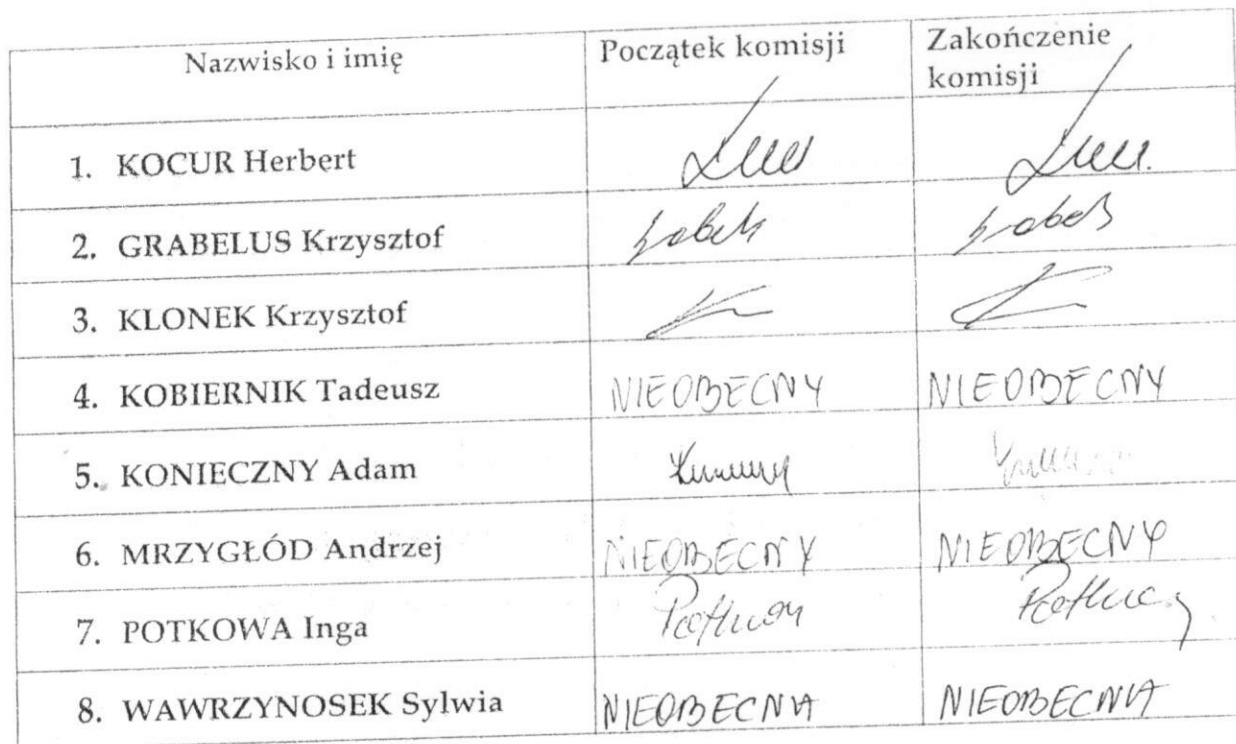 Nazwisko i imię Początek komisji Zakończenie
komisji
1. KOCUR Herbert
2. GRABELUS Krzysztof
3. KLONEK Krzysztof
4. KOBIERNIK Tadeusz NIEOBECNY NIEOBECNY
5. KONIECZNY Adam
6. MRZYGŁÓD Andrzej NIEOBECNY NIEOBECNY
7. POTKOWA Inga
8. WAWRZYNOSEK Sylwia NIEOBECNA NIEOBECNA